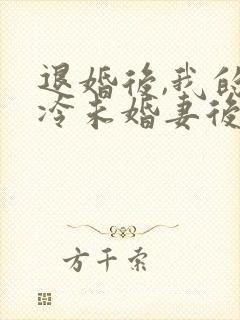 退婚後,我的
冷未婚妻後
方千索